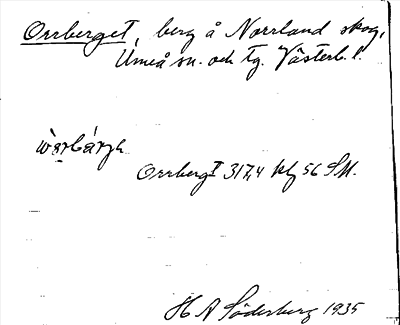 Orrberget, berg å Norrland skog,
Umeå sn. och tg. Västerb. l.
Orrberget 317,4 kbl 56 SV.
H A Söderberg 1935